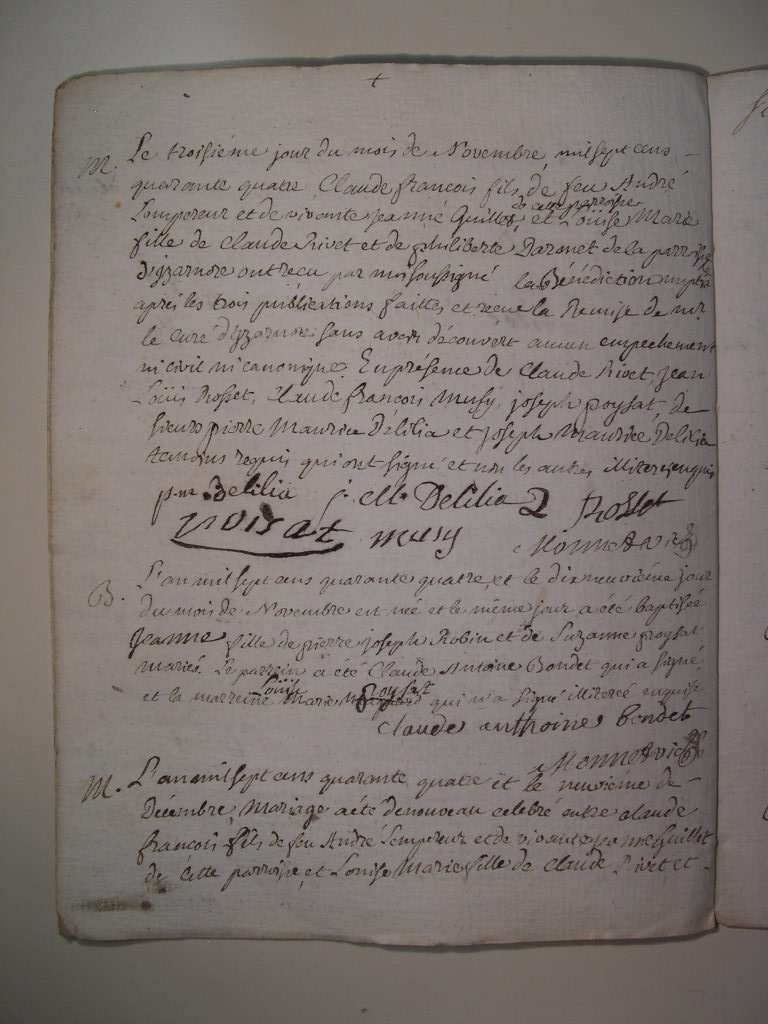 M. Le troisiéme jour du mois de Novembre, mil sept cens
quarante quatre, Claude françois fils de feu André
Lempereur et de vivante jeanne Guillot, de cette parroisse et Loüise Marie
fille de Claude Rivet et de philiberte Daronet de la parroisse
d'yzarnore ont reçu par moi soussigné la Bénédiction nuptia
après les trois publications faittes et recue la Remise de mr.
le Curé d'yzarnore sans avoir découvert aucun empechement
ni civil ni canonique. En présence de Claude Rivet, jean
Loüis Rosset, Claude françois Musy, joseph poysat, de
sieurs pierre Maurice Délilia et joseph Maurice Delilia
temoins requis qui ont signé et non les autres illiteres enquis
p. m. Delilia j. M. Delilia Rosset
poisat musy Monnet vic
B. L'an mil sept cens quarante quatre, et le dix neuviéme jour
du mois de Novembre est née et le même jour a été baptisée
jeanne fille de pierre joseph Robin et de Suzanne poysat
mariés. Le parrein a été Claude Antoine Bondet qui a signé
et la marreine Loüise Marie poysat qui n'a signé illiterée enquise
Claude anthoine bondet
Monnet vic
M. L'an mil sept cens quarante quatre et le neuviéme de
Décembre, Mariage a été de nouveau celebré entre Claude
françois fils de feu André Lempereur et de vivante jeanne Guillot
de cette parroisse, et Louise Marie fille de Claude Rivet et